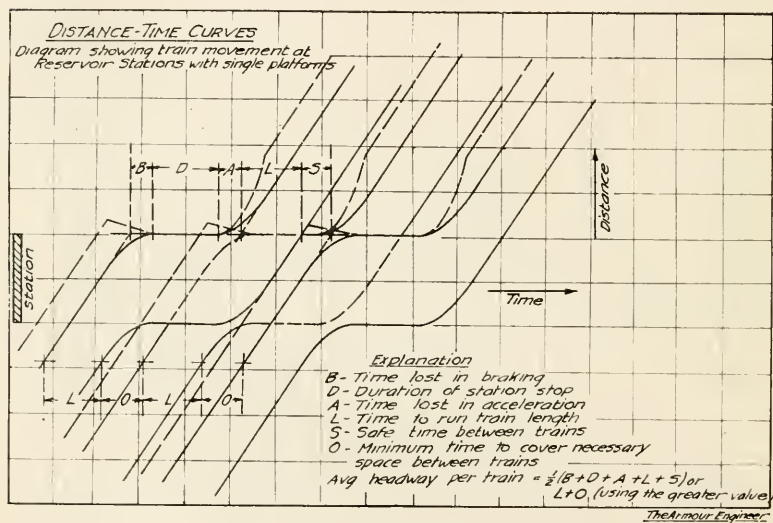 DISTANCE-TIME CURVES
Diagram showing train movement at
Reservoir Stations with single platforms
B D A L S
Distance
Station
Time
L O L O
Explanation
B - Time lost in braking
D - Duration of station stop
A - Time lost in acceleration
L - Time to run train length
S - Safe time between trains
O - Minimum time to cover necessary
space between trains
Avg headway per train = ½(B+D+A+L+S) or
L+O, (using the greater value)
The Armour Engineer